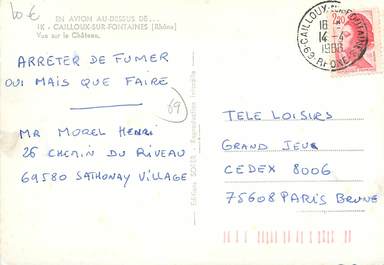 10 €
EN AVION AU-DESSUS DE...
IK - CAILLOUX-SUR-FONTAINES (Rhône)
Vue sur le Château.
CAILLOUX-S-FONTAINES
16 H
14 - 4
1988
69 RHONE
2,20
ARRETER DE FUMER
OUI MAIS QUE FAIRE
69
MR MOREL HENRI
26 CHEMIN DU RIVEAU
69580 SATHONAY VILLAGE
TELE LOISIRS
GRAND JEUX
CEDEX 8006
75608 PARIS BRUNE
Editions SOFER - Reproduction interdite